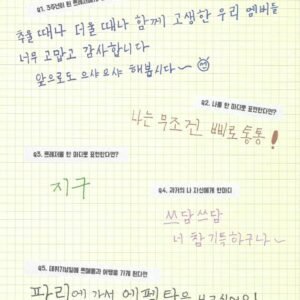 Q1. 5주년이 된
추울 때나 더울 때나 함께 고생한 우리 멤버들
너무 고맙고 감사합니다
앞으로도 으샤으샤 해봅시다~
Q2. 나를 한 마디로 표현한다면?
나는 무조건 삐로통통!
Q3. 트레저를 한 마디로 표현한다면?
지구
Q4. 과거의 나 자신에게 한마디
쓰담쓰담
너 참 기특하구나~
Q5. 데뷔기념일에 트메들과 여행을 가게 된다면
파리에 가서 에펠탑을